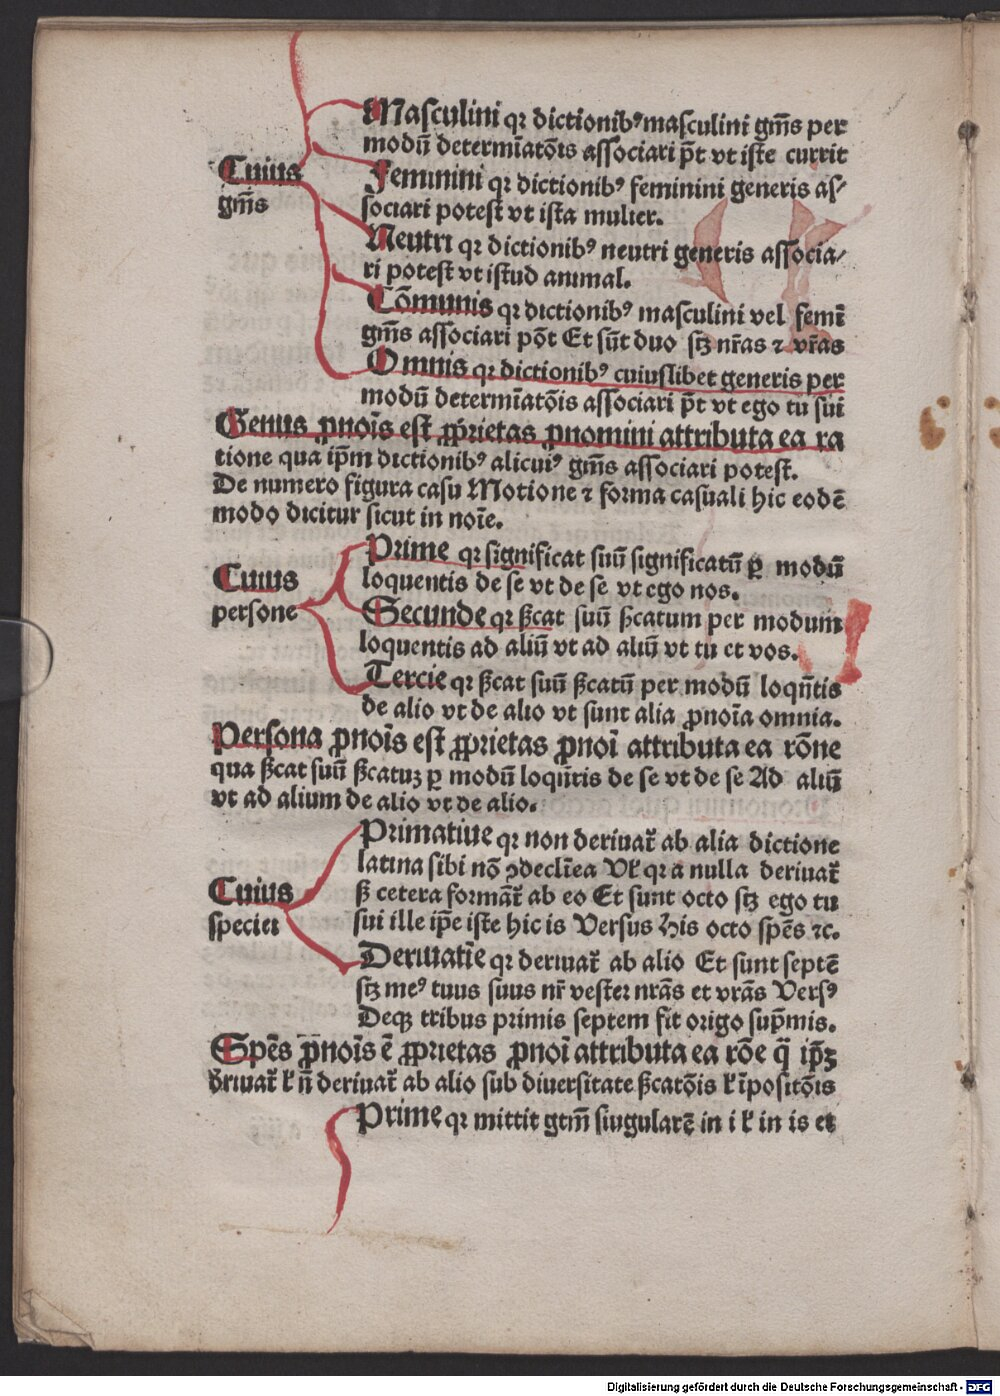 Masculini qꝛ dictionibꝰ masculini gm̄s per
modū determīatōis associari pt̄ vt iste currit
Cuius
gm̄s
Feminini qꝛ dictionibꝰ feminini generis as⸗
sociari potest vt ista mulier.
Neutri qꝛ dictionibꝰ neutri generis associa⸗
ri potest vt istud animal.
Cōmunis qꝛ dictionibꝰ masculini vel femī
gm̄s associari pōt Et sūt duo stꝫ nr̄as ⁊ vr̄as
Omnis qꝛ dictionibꝰ cuiuslibet generis per
modū determīatōis associari pt̄ vt ego tu sui
Genus ꝓnoīs est ꝓprietas ꝓnomini attributa ea ra
tione qua ip̄m dictionibꝰ alicuiꝰ gm̄s associari potest.
De numero figura casu Motione ⁊ forma casuali hic eodē
modo dicitur sicut in noīe.
Cuius
persone
Prime qꝛ significat suū significatū ꝑ modū
loquentis de se vt de se vt ego nos.
Secunde qꝛ ſꝫcat suū ſꝫcatum per modum
loquentis ad aliū vt ad aliū vt tu et vos.
Tercie qꝛ ſꝫcat suū ſꝫcatū per modū loqn̄tis
de alio vt de alio vt sunt alia ꝓnoīa omnia.
Persona ꝓnoīs est ꝓprietas ꝓnoī attributa ea rōne
qua ſꝫcat suū ſꝫcatuꝫ ꝑ modū loqn̄tis de se vt de se Ad aliū
vt ad alium de alio vt de alio.
Cuius
speciei
Primatiue qꝛ non deriuat̄ ab alia dictione
latina sibi nō ꝯdeclīea Vl̄ qꝛ a nulla deriuat̄
ſꝫ cetera formāt̄ ab eo Et sunt octo stꝫ ego tu
sui ille ip̄e iste hic is Versus His octo spēs ⁊c.
Deriuatīe qꝛ deriuat̄ ab alio Et sunt septē
stꝫ meꝰ tuus suus nr̄ vester nrās et vrās Versꝰ
Deqꝫ tribus primis septem fit origo sup̄mis.
Spēs ꝓnoīs ē ꝓprietas ꝓnoī attributa ea rōe q̄ ip̄ꝫ
d̄riuat̄ l̄ n̄ deriuat̄ ab alio sub diuersitate ſꝫcatōis l̄ īpositōis
Prime qꝛ mittit gtm̄ singularē in i l̄ in is et
Digitalisierung gefördert durch die Deutsche Forschungsgemeinschaft - DFG